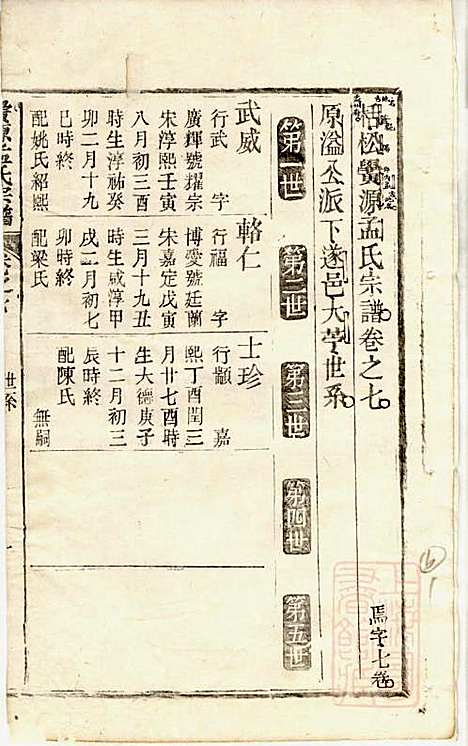 括松賢源孟氏宗譜卷之七
馬字七卷
原溢公派下遂邑大學世系
第一世
第二世
第三世
第四世
第五世
武威
行武 字
廣輝號耀宗
宋淳熙壬寅
八月初三酉
時生淳祐癸
卯二月十九
巳時終
配姚氏紹熙
輅仁
行福 字
博愛號廷蘭
宋嘉定戊寅
三月十九丑
時生咸淳甲
戌二月初七
卯時終
配梁氏
士珍
行顯 嘉
熙丁酉閏三
月廿七酉時
生大德庚子
十二月初三
辰時終
配陳氏
無嗣
世系